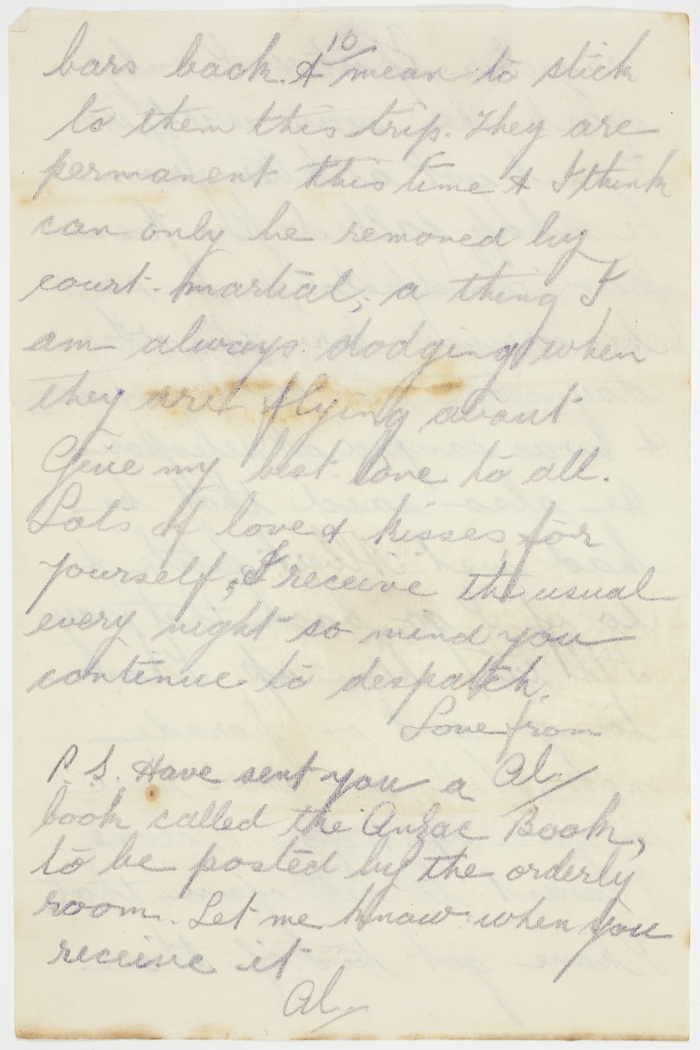 10
bars back. I mean to stick
to them this trip. They are
permanent this time & I think
can only be removed by
court-martial, a thing I
am always dodging when
they are flying about
Give my best love to all.
Lots of love & kisses for
yourself, I receive the usual
every night so mind you
continue to despatch.
Love from
Al
P.S. Have sent you a
book called the Anzac Book,
to be posted by the orderly
room. Let me know when you
receive it
Al